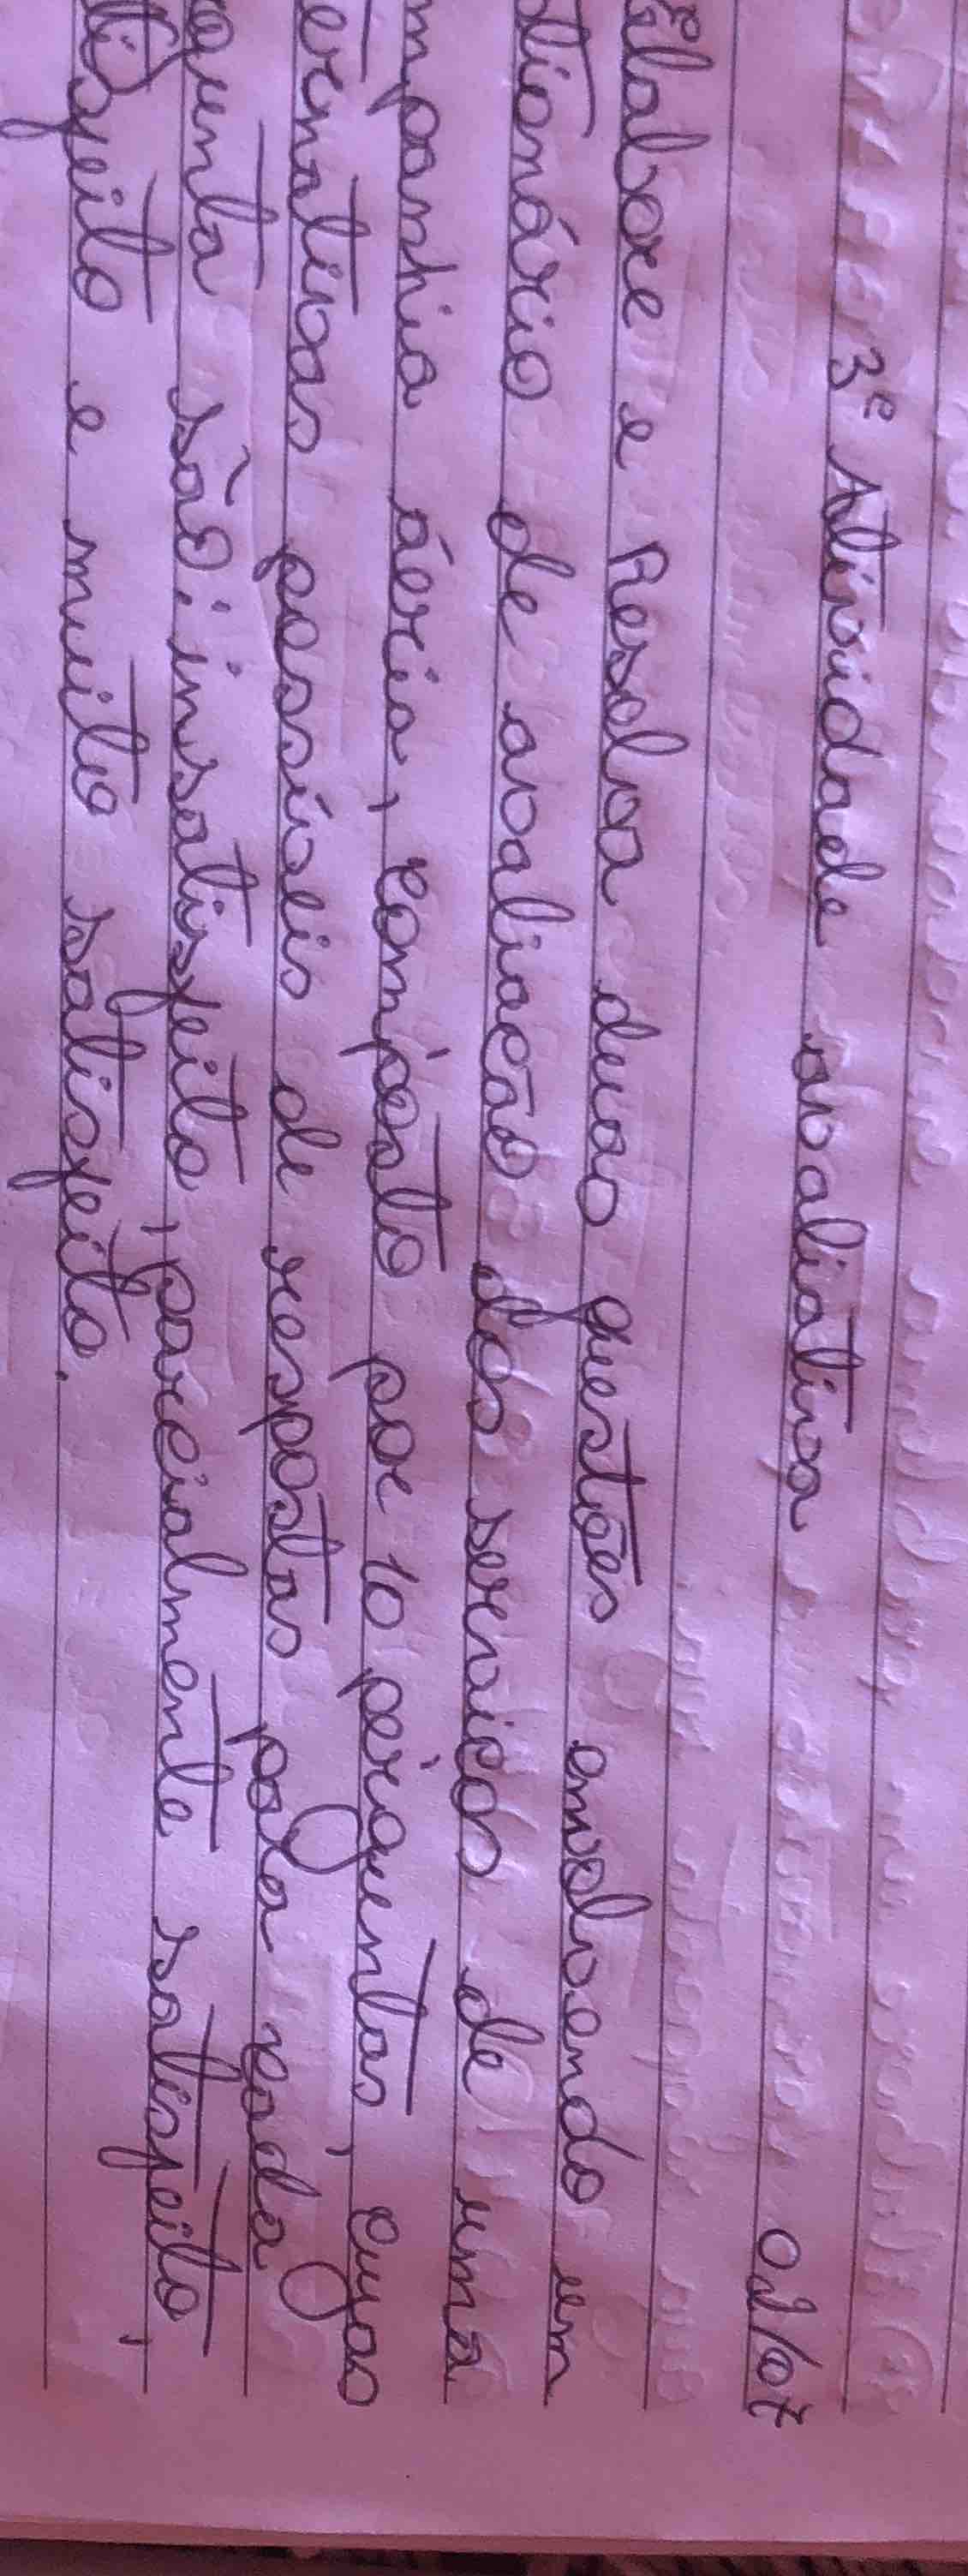 3ª Atividade avaliativa 02/07
Elabore e Resolva duas questões envolvendo um
stionário de avaliação dos serviços de uma
mpanhia áeria, composto por 10 perguntas, cujas
ernativas possíveis de respostas para cada
gunta são: insatisfeito, parcialmente satisfeito,
tisfeito e muito satisfeito.